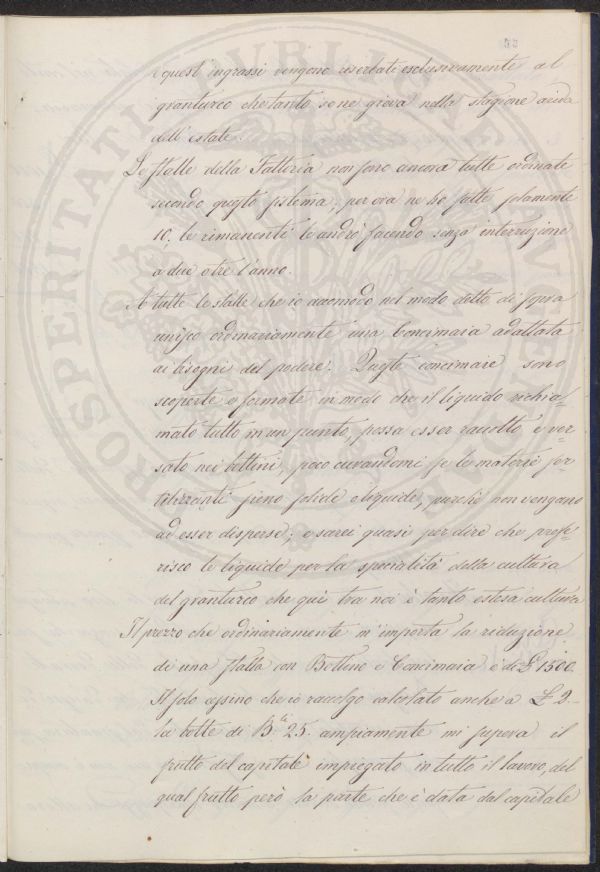 53
e quest' ingrassi vengono riserbati esclusivamente al
granturco che tanto se ne giova nella stagione arida
dell' estate.
Le stalle della Fattoria non sono ancora tutte ordinate
secondo questo sistema; per ora ne ho fatte solamente
10. le rimanenti le andrò facendo senza interruzione
a due o tre l'anno.
A tutte le stalle che io accomodo nel modo detto di sopra
unisco ordinariamente una Concimaia adattata
ai bisogni del podere. Queste concimaie sono
scoperte e formate in modo che il liquido richia-
mato tutto in un punto, possa esser raccolto e ver-
sato nei bottini, poco curandomi se le materie fer-
tilizzanti sieno solide o liquide, purchè non vengano
ad esser disperse; e sarei quasi per dire che prefe-
risco le liquide per la specialità della cultura
del granturco che quì tra noi è tanto estesa cultura
Il prezzo che ordinariamente m' importa la riduzione
di una stalla con Bottino e Concimaia è di £ 1500.
Il solo cessino che io raccolgo calcolato anche a £ 2
la botte di B.a 25. ampiamente mi supera il
frutto del capitale impiegato in tutto il lavoro, del
qual frutto però la parte che è data dal capitale
PROSPERITATI PUBLICAE AUGENDAE